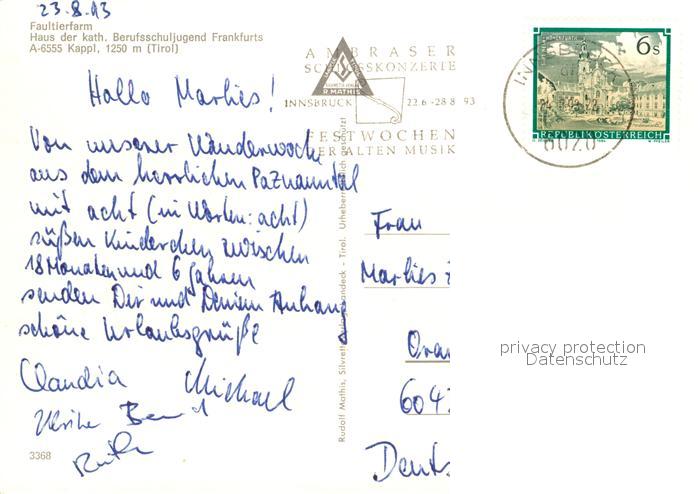 23.8.93
Faultierfarm
Haus der kath. Berufsschuljugend Frankfurts
A-6555 Kappl, 1250 m (Tirol)
AMBRASER
SCHLOSSKONZERTE
R. MATHIS
INNSBRUCK 22.6-28.8 93
FESTWOCHEN
DER ALTEN MUSIK
6s
REPUBLIK ÖSTERREICH
6020
Hallo Marlies!
Von unserer Wanderwoche
aus dem herrlichen Paznauntal
mit acht (in Worten: acht)
süßen Kinderchen zwischen
18 Monaten und 6 Jahren
senden Dir und Deinem Anhang
schöne Urlaubsgrüße
Claudia Michael
Ulrike Bernd
Ruth
3368
Rudolf Mathis, Silvretta Landeck - Tirol. Urheberrechtlich geschützt
Frau
Marlies
Oran
6047
Deuts
privacy protection
Datenschutz